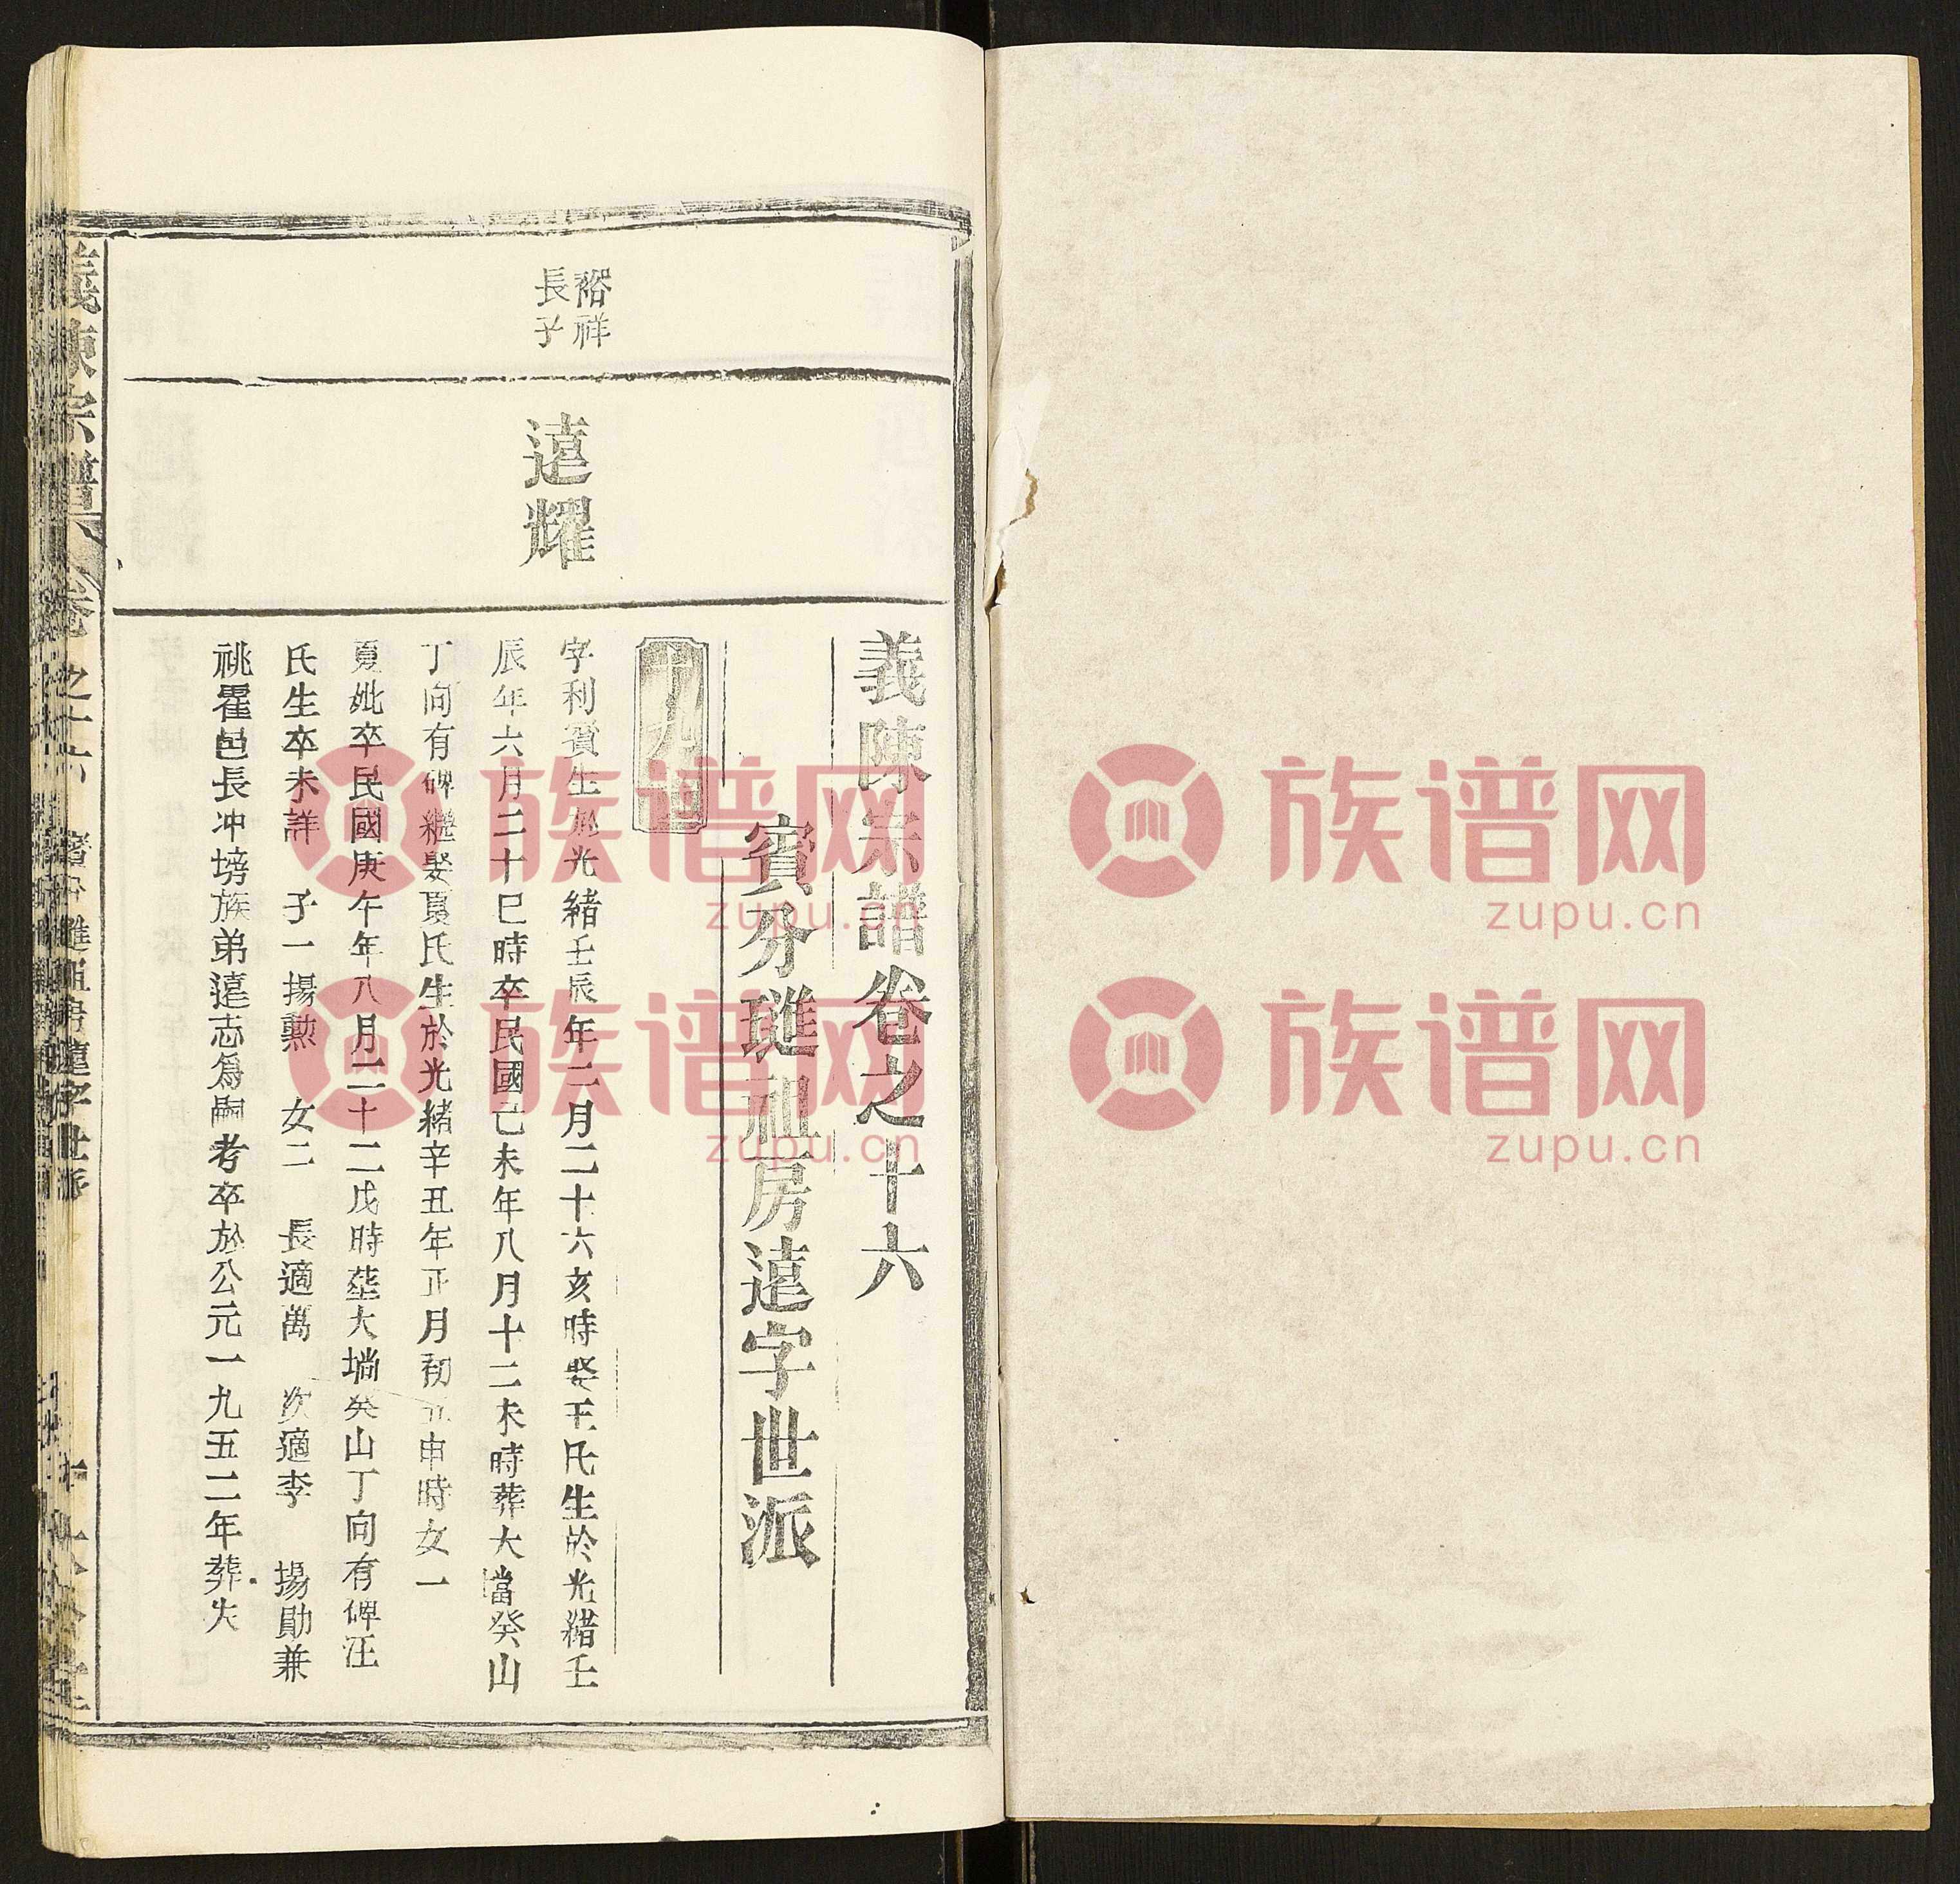 義陳宗譜卷之十六
賓分璡祖房遠字世派
十九世
裕祥
長子
遠耀
字利賓生於光緒壬辰年二月二十六亥時娶王氏生於光緒壬
辰年六月二十巳時卒民國己未年八月十二未時葬大壋癸山
丁向有碑繼娶夏氏生於光緒辛丑年正月初五申時女一
夏妣卒民國庚午年八月二十二戌時塟大壋癸山丁向有碑汪
氏生卒未詳 子一揚勲 女二 長適萬 次適李 揚勛兼
祧瞿邑長冲塝族弟遠志爲嗣考卒於公元一九五二年葬失
義陳宗譜 卷之十六 璡祖房遠字世派
族谱网
zupu.cn
族谱网
zupu.cn
族谱网
zupu.cn
族谱网
zupu.cn